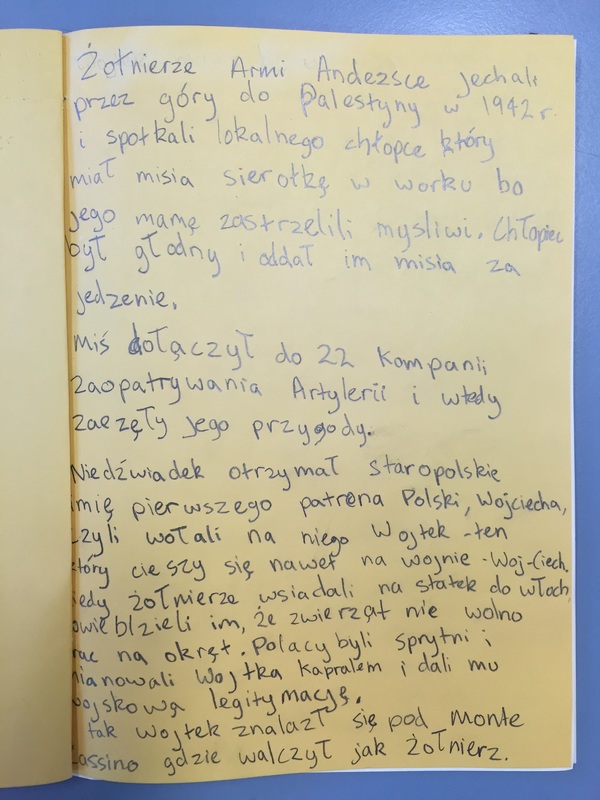 Żołnierze Armi Andezsce jechali
przez góry do Palestyny w 1942 r.
i spotkali lokalnego chłopce który
miał misia sierotkę w worku bo
jego mamę zastrzelili mysliwi. Chłopiec
był głodny i oddał im misia za
jedzenie.
Miś dołączył do 22 kompanii
Zaopatrywania Artylerii i wtedy
zaczęły jego przygody.
Niedźwiadek otrzymał staropolskie
imię pierwszego patrona Polski, Wojciecha,
czyli wołali na niego Wojtek -ten
który cieszy się nawet na wojnie -Woj-Ciech.
iedy żołnierze wsiadali na statek do włoch,
owiedzieli im, że zwierząt nie wolno
rac na okręt. Polacy byli sprytni i
mianowali Wojtka kapralem i dali mu
wojskową legitymację.
tak wojtek znalazł się pod Monte
Cassino gdzie walczył jak żołnierz.